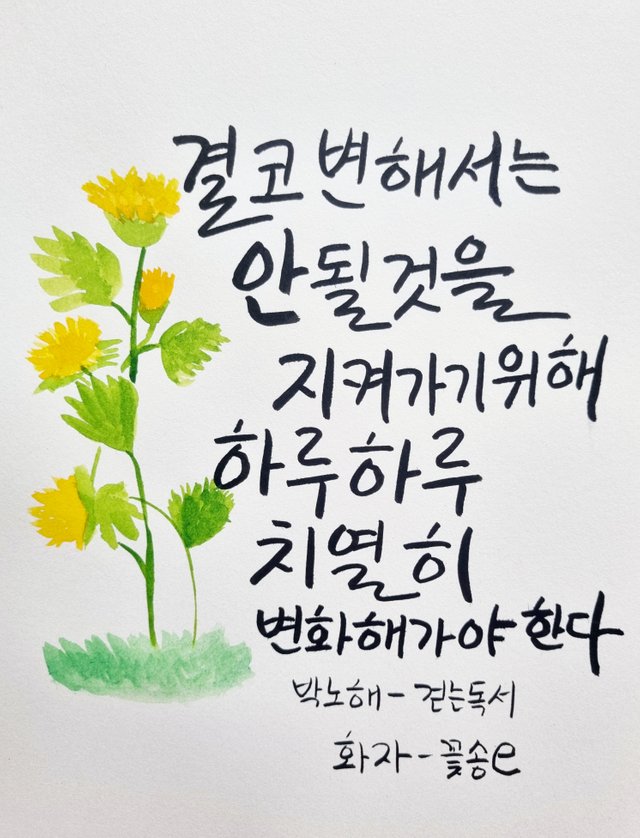 결코 변해서는
안될것을
지켜가기위해
하루하루
치열히
변화해가야 한다
박노해 - 걷는독서
화자 - 꽃송e